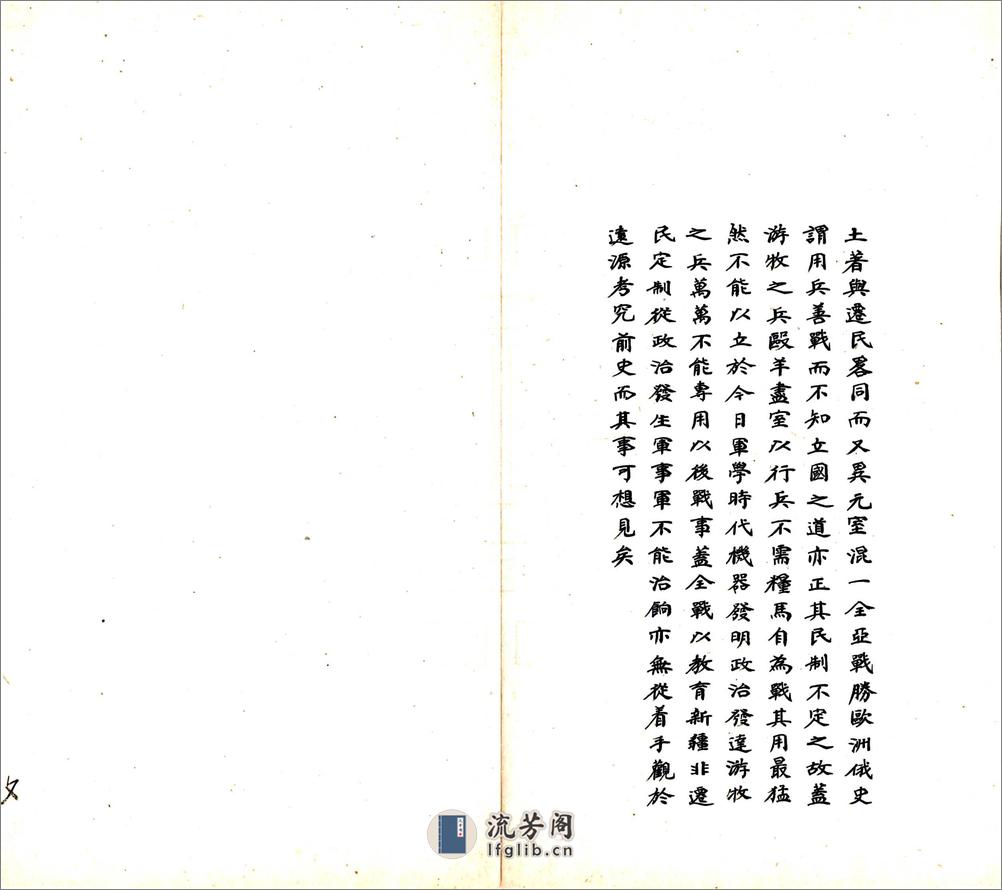 土著與遷民畧同而又異元室混一全亞戰勝歐洲俄史
謂用兵善戰而不知立國之道亦正其民制不定之故蓋
游牧之兵毆羊盡室以行兵不需糧馬自為戰其用最猛
然不能以立於今日軍學時代機器發明政治發達游牧
之兵萬萬不能專用以後戰事蓋全戰以教育新疆非遷
民定制從政治發生軍事軍不能治餉亦無從着手觀於
遠源考究前史而其事可想見矣
文
流芳阁
lfglib.cn